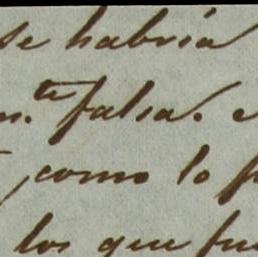 se habria
falsa.
como lo
los que